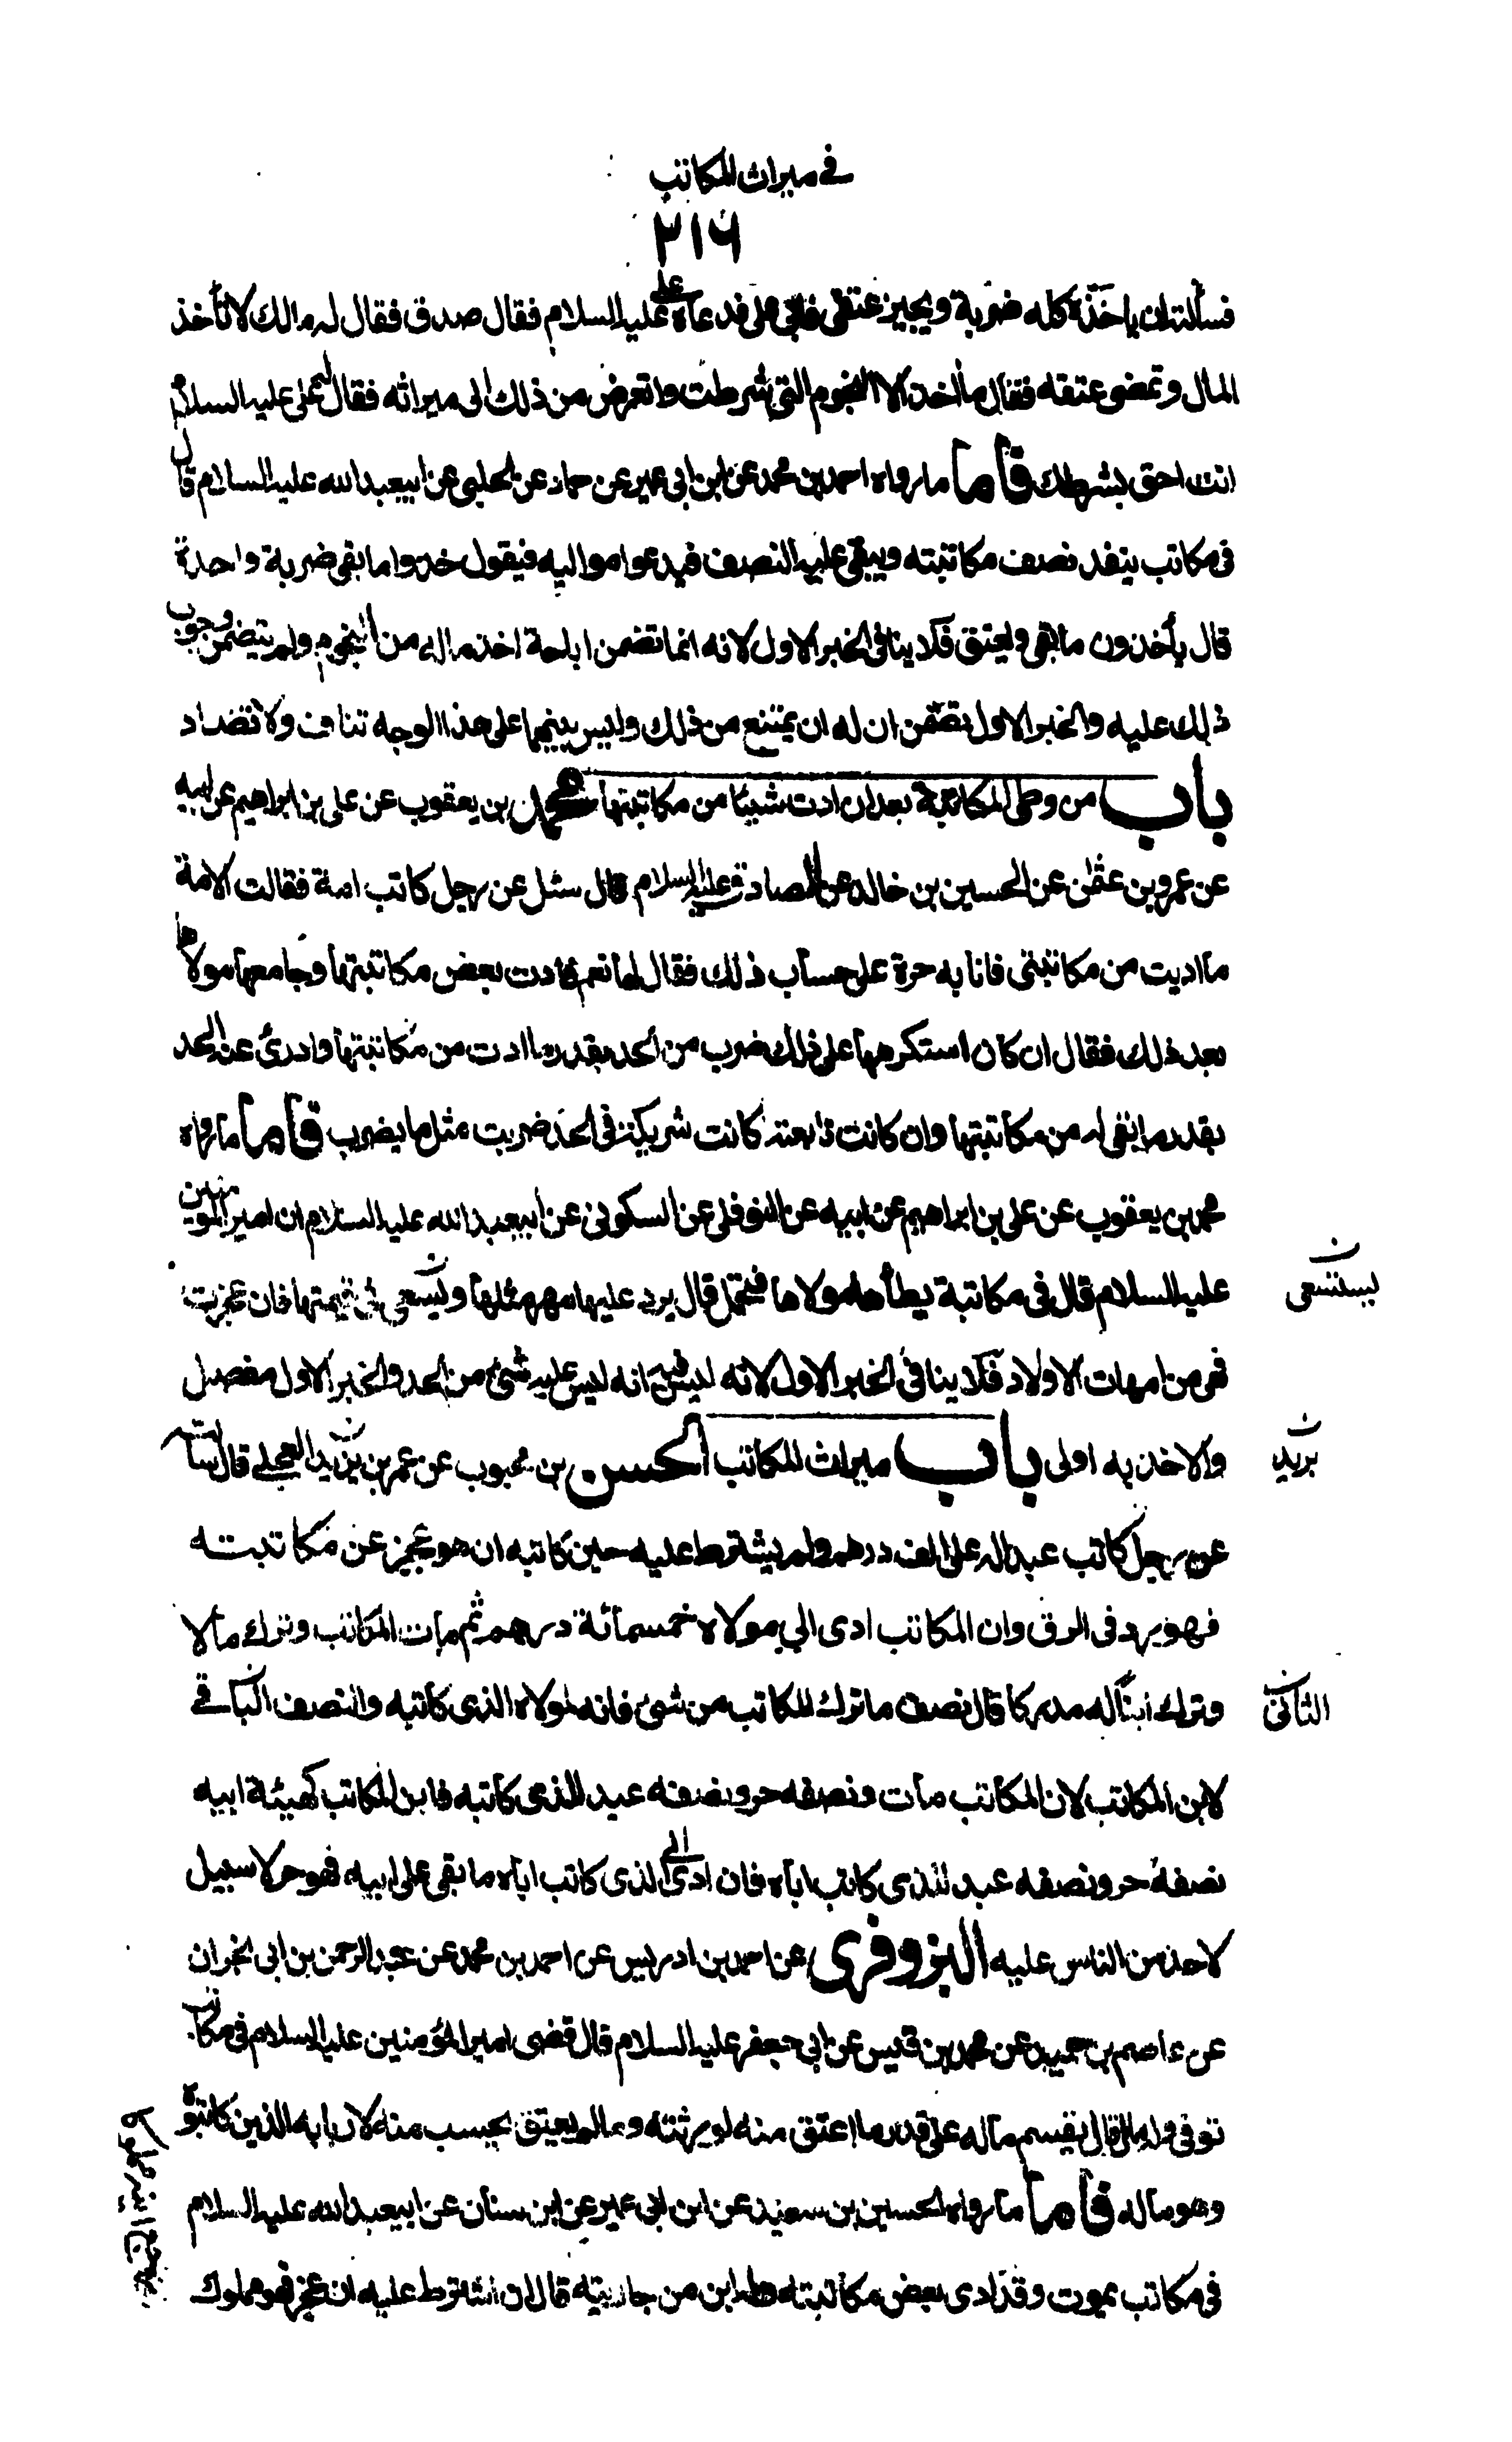 في ميراث المكاتب
٣١٦
فسألته ان ياخذه كله ضربة ويجيز عتقي فابى على فدعاه علي عليه السلام فقال صدق فقال له مالك لا تأخذ
المال وتمضى عتقه فقال ما أخذ الا النجوم التي شرطت واتعرض من ذلك الى ميراثه فقال على عليه السلام
انت احق بشرطك فأما ما رواه احمد بن محمد عن ابن ابى عمير عن حماد عن الحلبي عن ابيعبد الله عليه السلام قال
فى مكاتب ينفد نصف مكاتبته ويبقى عليه النصف فيدعوا مواليه فيقول خذوا ما بقى ضربة واحدة
قال يأخذون ما بقى ويعتق فلا ينافى الخبر الاول لانه انما تضمن اباحة اخذ ماله من النجوم ولم يتضمن وجوب
ذلك عليه والخبر الاول تضمن ان له ان يمتنع من ذلك وليس بينهما على هذا الوجه تناف ولا تضاد
باب من وطى المكاتبة بعد ان ادت شيئا من مكاتبتها محمد بن يعقوب عن على بن ابراهيم عن ابيه
عن عمرو بن عثمن عن الحسين بن خالد عن الصادق عليه السلام قال سئل عن رجل كاتب امة فقالت الامة
ما اديت من مكاتبتى فانا به حرة على حساب ذلك فقال لها نعم فادت بعض مكاتبتها وجامعها مولاها
بعد ذلك فقال ان كان استكرهها على ذلك ضرب من الحد بقدر ما ادت من مكاتبتها وادرئ عنه الحد
بقدر ما بقى له من مكاتبتها وان كانت تابعته كانت شريكته فى الحد ضربت مثل ما يضرب فأما ما رواه
محمد بن يعقوب عن على بن ابراهيم عن ابيه عن النوفلى عن السكونى عن ابيعبد الله عليه السلام ان امير المؤمنين
عليه السلام قال فى مكاتبة يطأها مولاها فتحمل قال يرد عليها مهر مثلها وتسعى في قيمتها فان عجزت
ن
ليستسعى
فهى من امهات الاولاد فلا ينافى الخبر الاول لانه ليس فيه انه ليس عليه شئ من الحد والخبر الاول مفصل
والاخذ به اولى باب ميراث المكاتب الحسن بن محبوب عن عمر بن يزيد العجلي قال سألته
ن
بريد
عن رجل كاتب عبدا له على الف درهم ولم يشترط عليه حين كاتبه ان هو عجز عن مكاتبته
فهو يرد فى الرق وان المكاتب ادى الى مولاه خمسمائة درهم ثم مات المكاتب وترك مالا
وترك ابنا له مدركا قال نصف ما ترك المكاتب من شئ فانه لمولاه الذى كاتبه والنصف الباقي
الثانى
لابن المكاتب لان المكاتب مات ونصفه حر ونصفه عبد للذى كاتبه فابن المكاتب كهيئة ابيه
نصفه حر ونصفه عبد للذى كاتب اباه فان ادى الى الذى كاتب اباه ما بقى على ابيه فهو حر لا سبيل
لاحد من الناس عليه البزوفرى عن احمد بن ادريس عن احمد بن محمد عن عبد الرحمن بن ابى نجران
عن عاصم بن حميد عن محمد بن قيس عن ابى جعفر عليه السلام قال قضى امير المؤمنين عليه السلام فى مكاتب
توفى وله مال قال يقسم ماله على قدر ما اعتق منه لورثته وما لم يعتق يحسب منه لاربابه الذين كاتبوه
وهو ماله فأما ما رواه الحسين بن سعيد عن ابن ابى عمير عن ابن سنان عن ابيعبد الله عليه السلام
فى مكاتب يموت وقد ادى بعض مكاتبته وله ابن من جاريته قال ان اشترط عليه ان عجز فهو مملوك